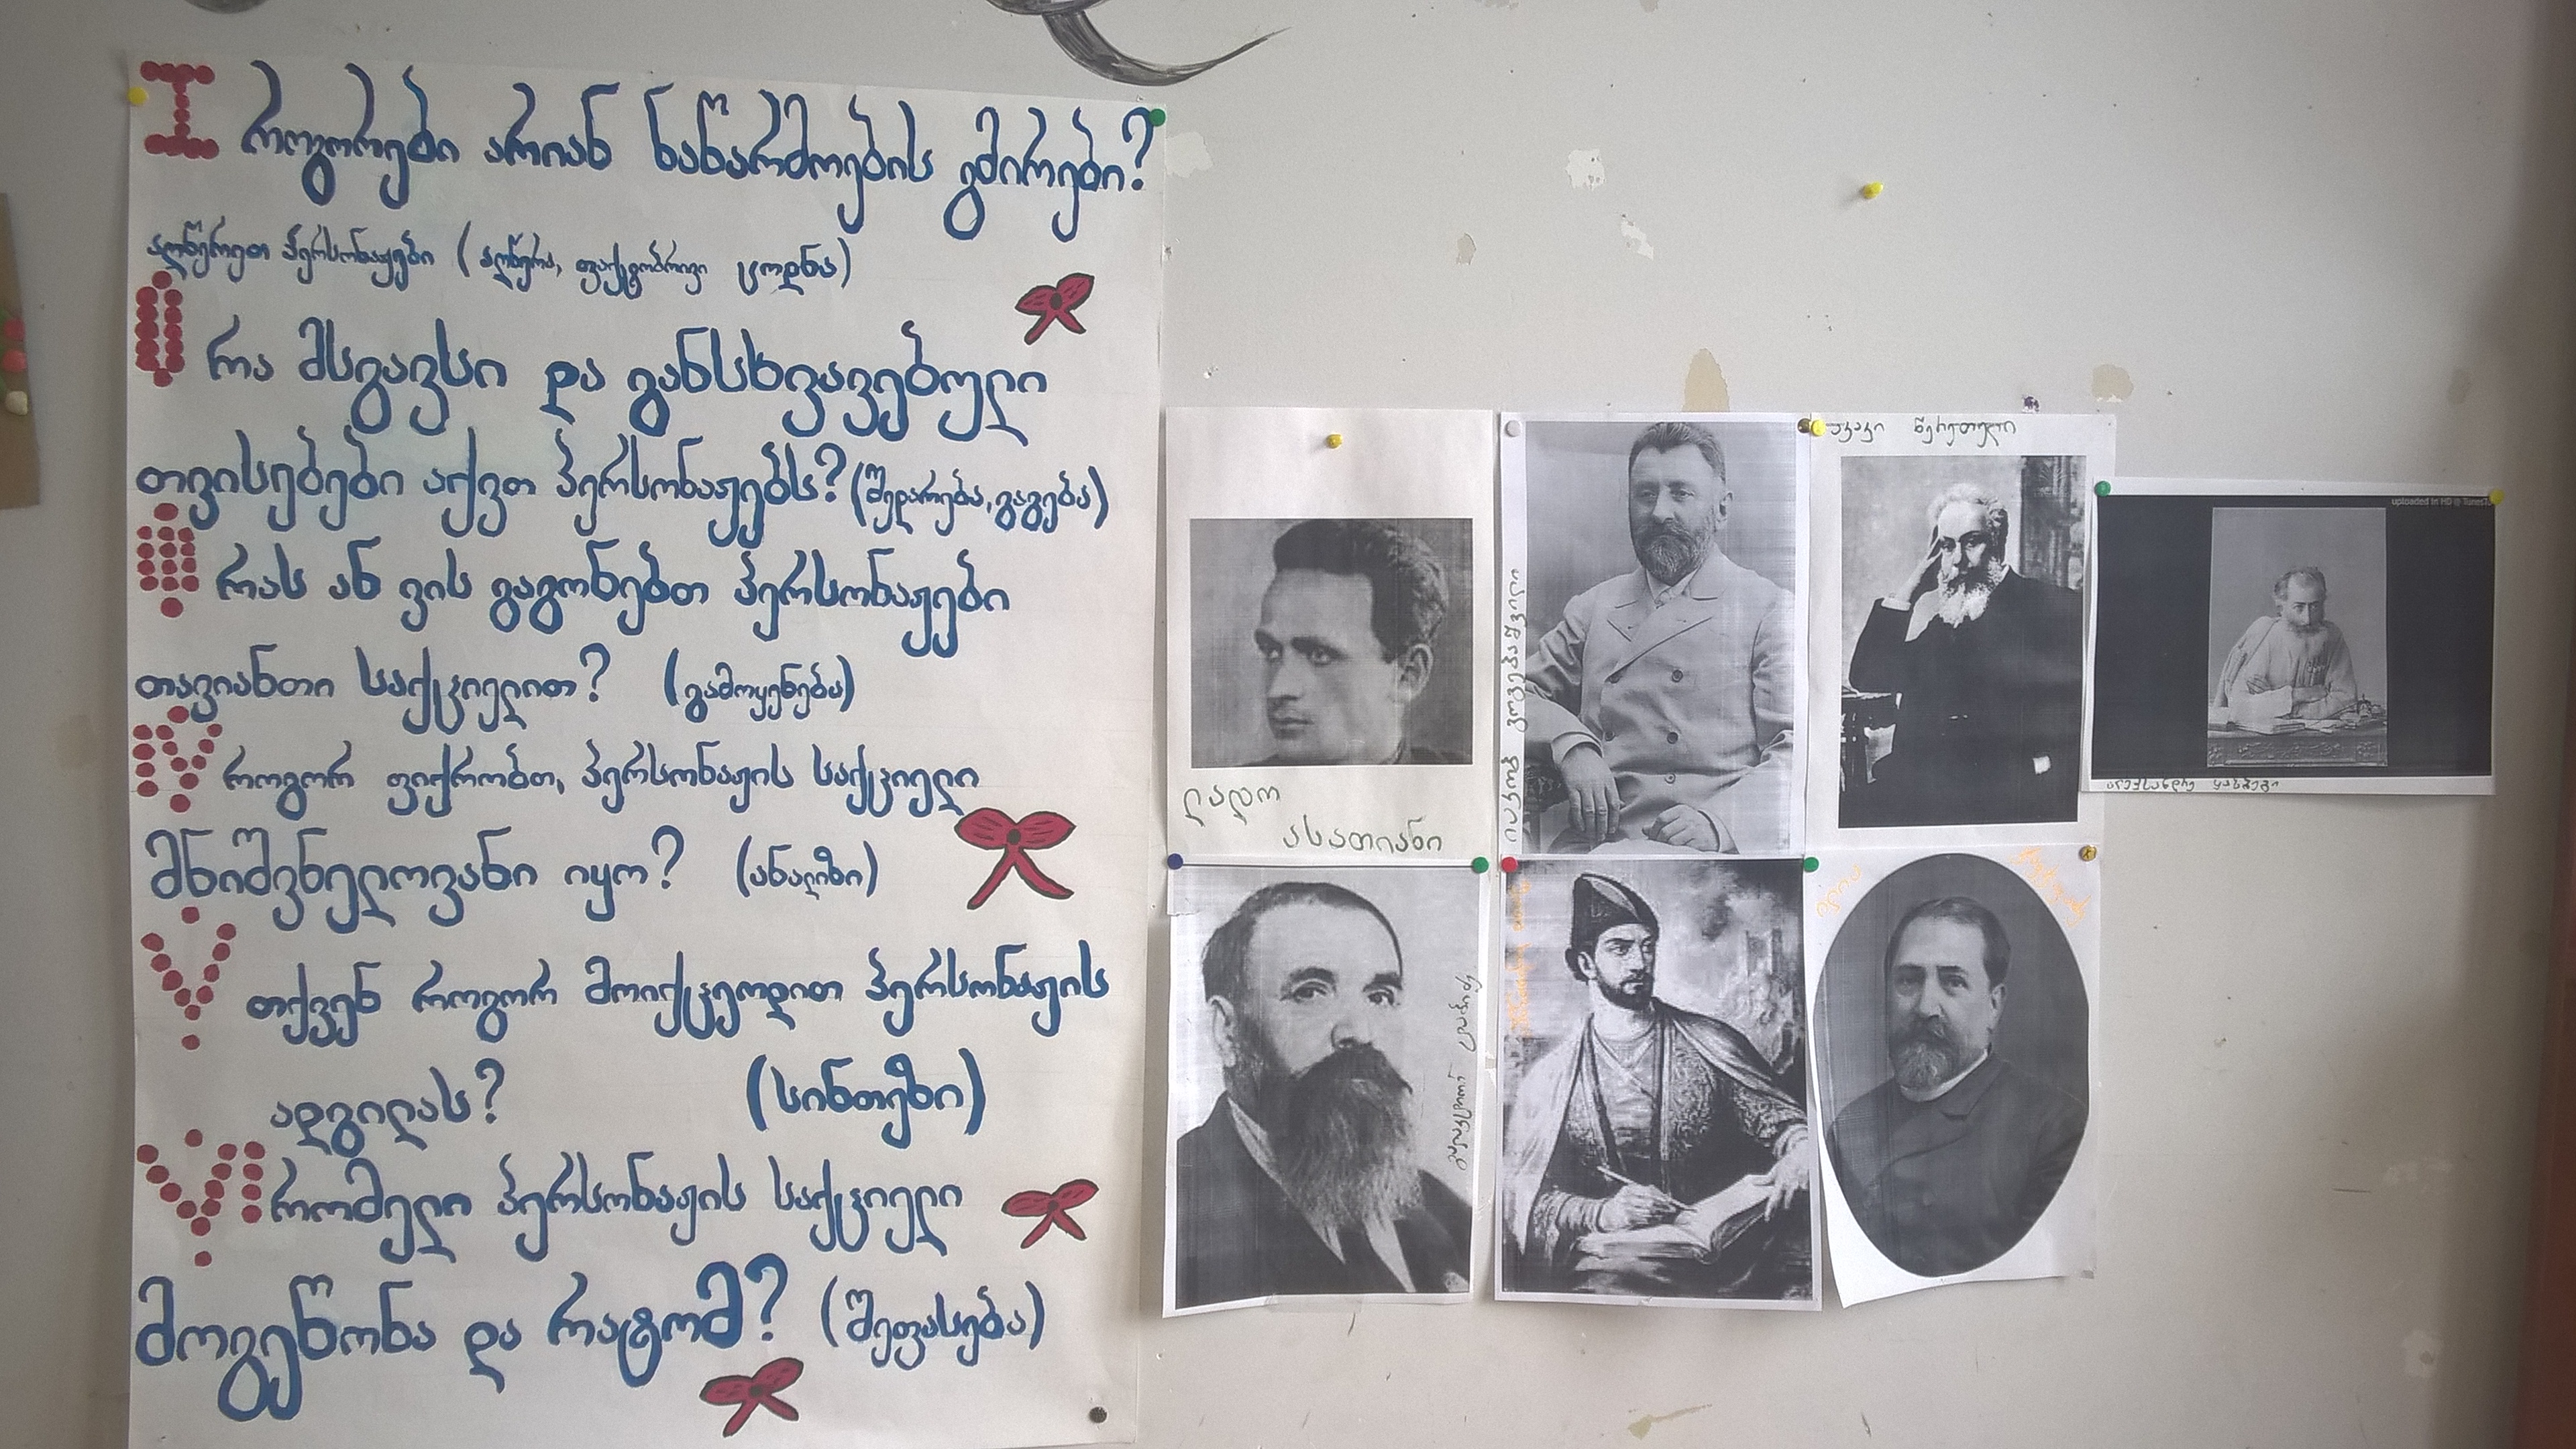 I როგორები არიან ნაწარმოების გმირები?
აღწერეთ პერსონაჟები (აღწერა, ფაქტობრივი ცოდნა)
II რა მსგავსი და განსხვავებული
თვისებები აქვთ პერსონაჟებს? (შედარება, გაგება)
III რას ან ვის გაგონებთ პერსონაჟები
თავიანთი საქციელით? (გამოყენება)
IV როგორ ფიქრობთ, პერსონაჟის საქციელი
მნიშვნელოვანი იყო? (ანალიზი)
V თქვენ როგორ მოიქცეოდით პერსონაჟის
ადგილას? (სინთეზი)
VI რომელი პერსონაჟის საქციელი
მოგეწონა და რატომ? (შეფასება)
ლადო
ასათიანი
იაკობ გოგებაშვილი
აკაკი წერეთელი
uploaded in HD @
ალექსანდრე ყაზბეგი
ვაჟა